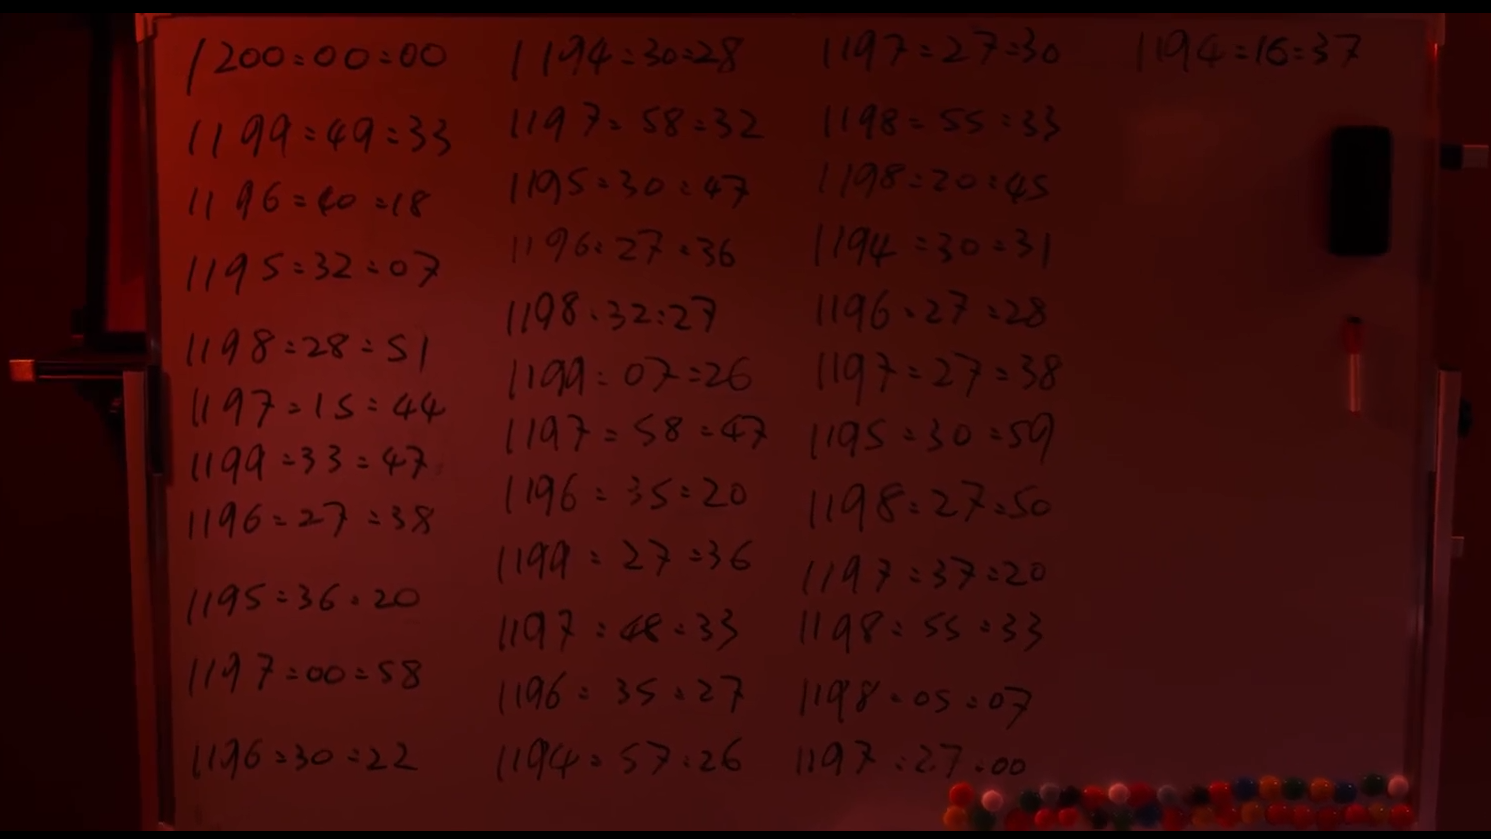 1200:00:00
1199:49:33
1196:40:18
1195:32:07
1198:28:51
1197:15:44
1199:33:47
1196:27:38
1195:36:20
1197:00:58
1196:30:22
1194:30:28
1197:58:32
1195:30:47
1196:27:36
1198:32:27
1199:07:26
1197:58:47
1196:35:20
1199:27:36
1197:48:33
1196:35:27
1194:57:26
1197:27:30
1198:55:33
1198:20:45
1194:30:31
1196:27:28
1197:27:38
1195:30:59
1198:27:50
1197:37:20
1198:55:33
1198:05:07
1197:27:00
1194:16:37